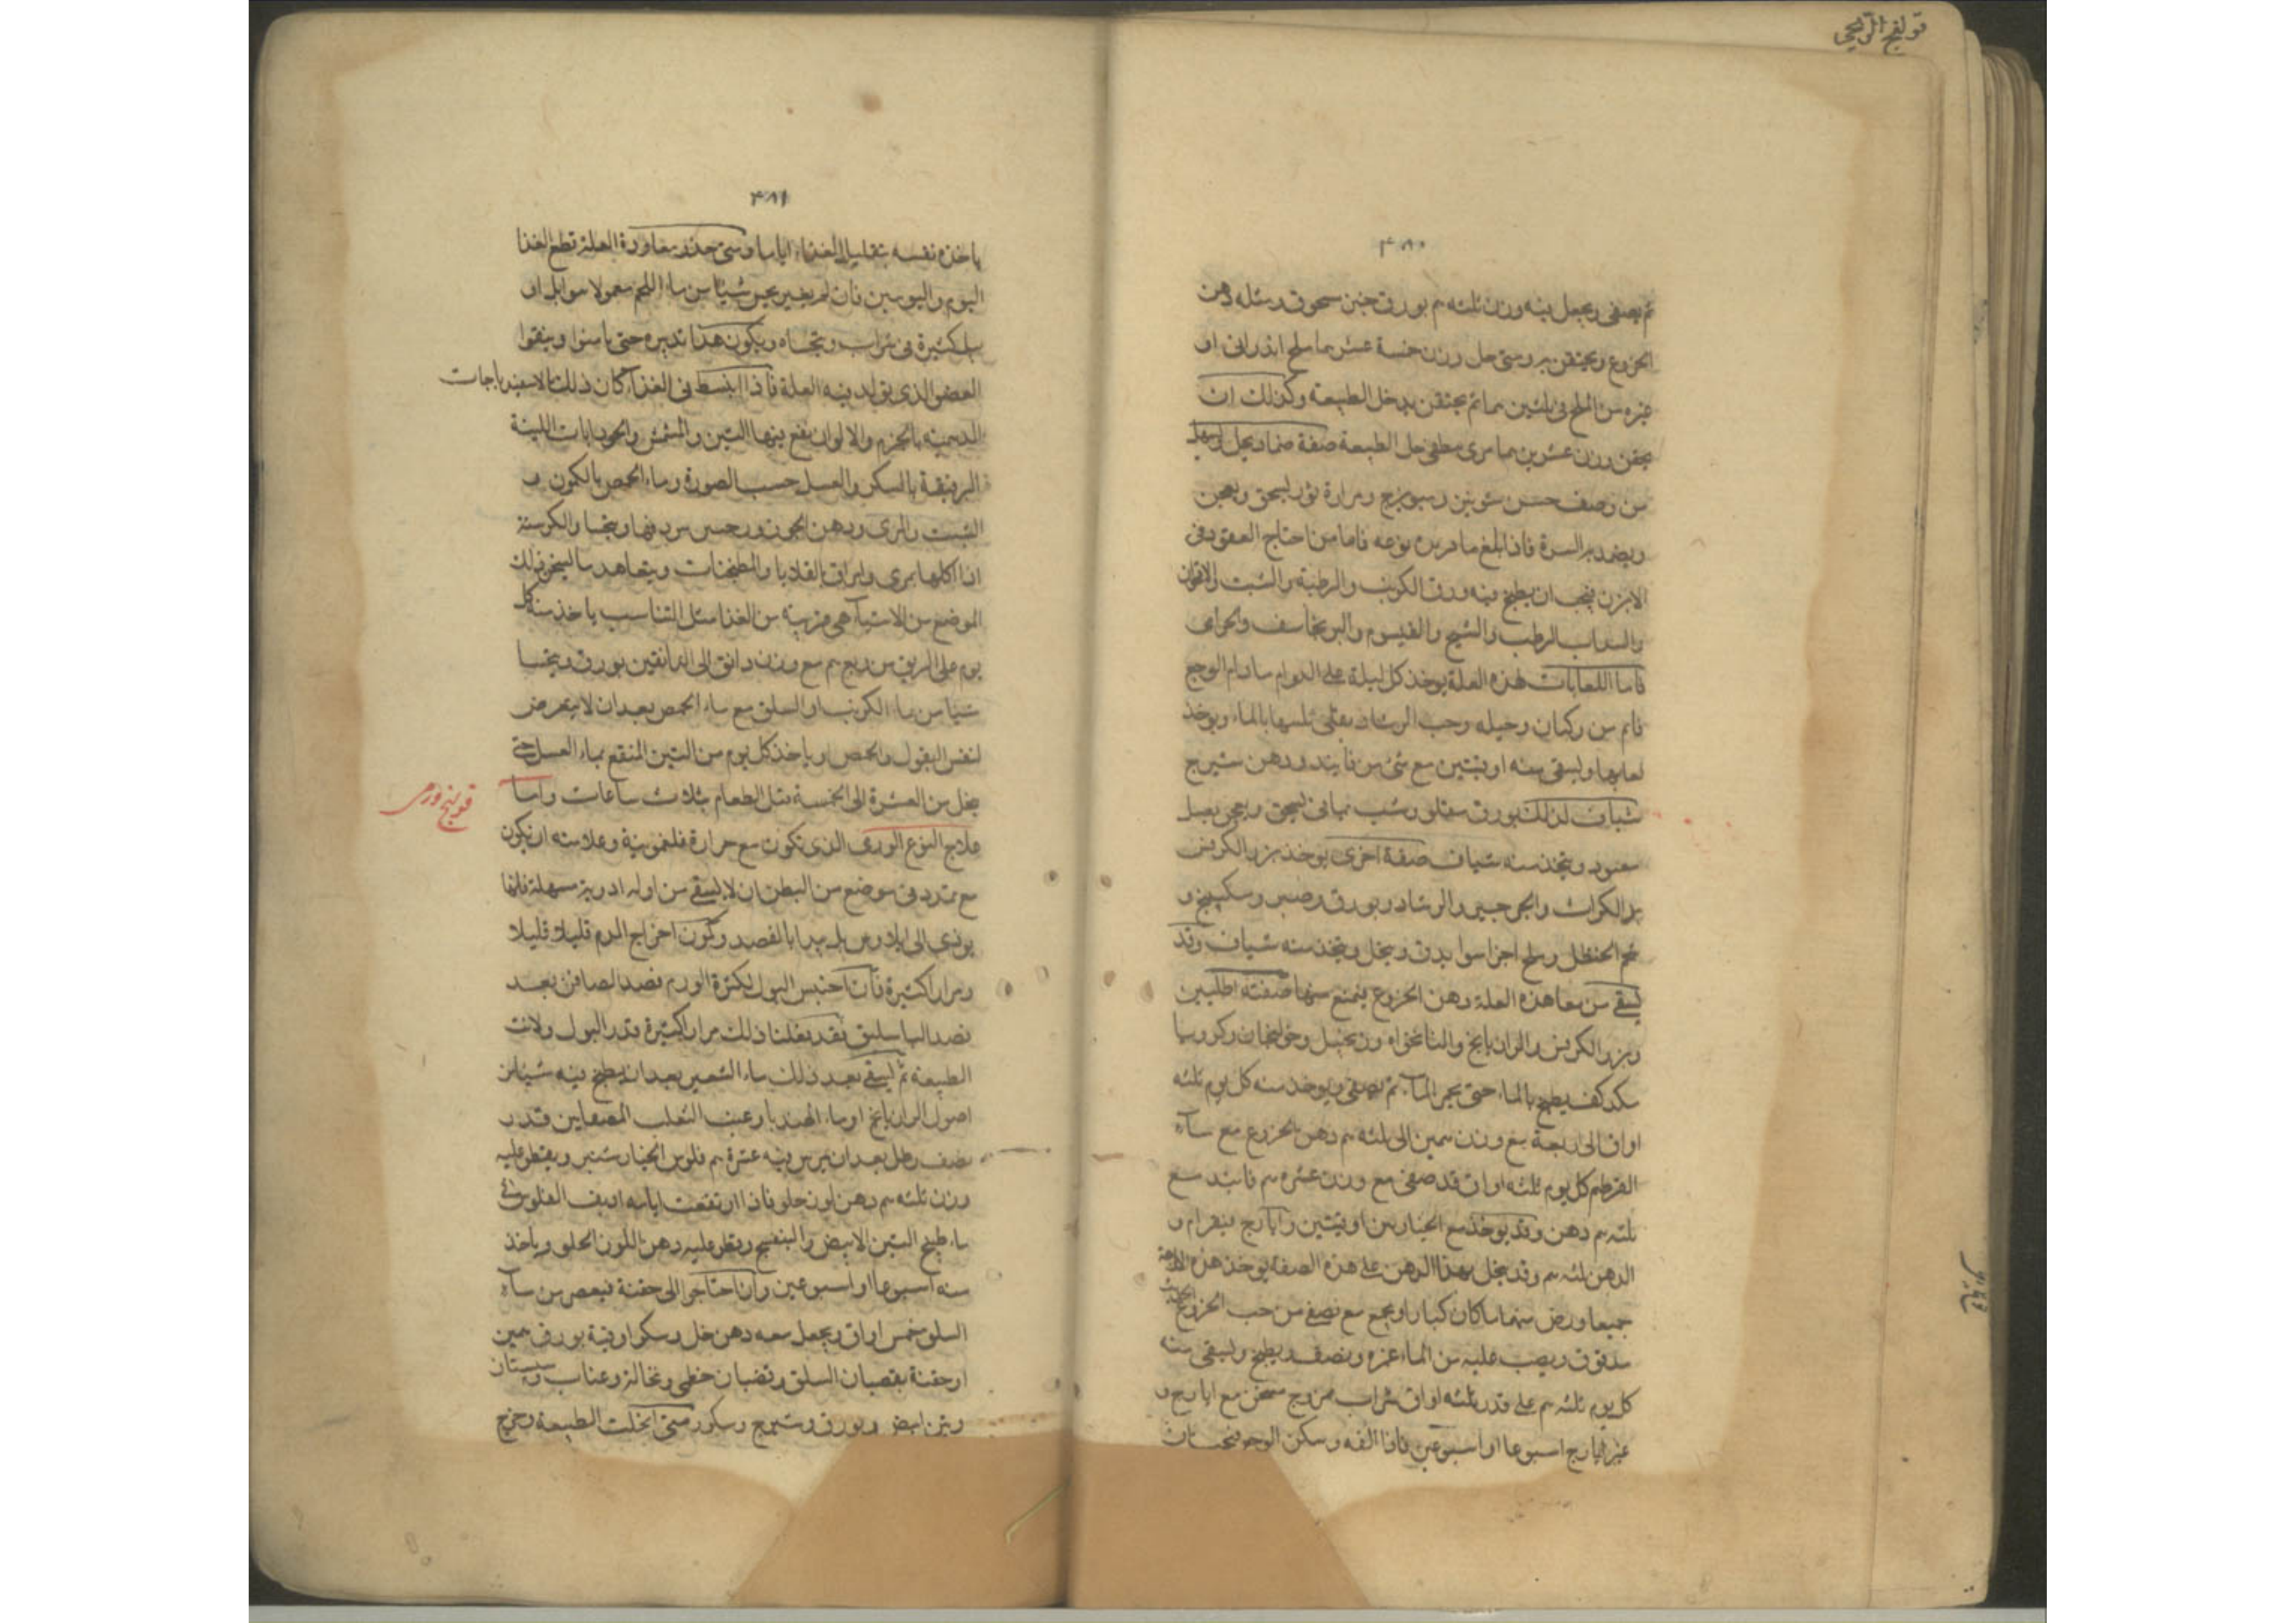 قولنج
٤٨٠
ثم يصفى ويجعل فيه وزن ثلثه م بورق خبز مسحوق ومثله دهن
الخروع ويحتقن به ومتى حل وزن خمسة عشر سما ملح اندرانى او
غيره من الملح فى ثلثين سما ثم يحتقن به حل الطبيعة وكذلك ان
يحقن وزن عشرين سما مرى مطفى حل الطبيعة صفة ضماد يحل ويسهل
من وصف حسن شونيز وميويزج ومرارة ثور يسحق ويعجن
ويضمد به السرة فاذا بلغ ما تريده نزعه فاما من احتاج القعود فى
الابزن فيجب ان يطبخ فيه ورق الكرنب والرطبة والشبت والاقحوان
والسداب الرطب والشيح والقيسوم والبرنجاسف والحرامى
فاما اللعابات لهذه العلة يوخذ كل ليلة على الدوام مادام الوجع
قائم من بزركتان وحلبه وحب الرشاد يغلى ثلثها بالماء ويوخذ
لعابها ويسقى منه اوقيتين مع شئ من فانيد ودهن شيرج
شياف لذلك بورق مقلو وشب يمانى يسحق ويعجن بعسل
معقود ويتخذ منه شياف صفة اخرى يوخذ بزر الكرفس
بزر الكراث والجرجير والرشاد وبورق وصبر وسكبينج و
شحم الحنظل وملح اجزا سوا يدق وينخل ويتخذ منه شياف وقد
يسقى من معا هذه العلة دهن الخروع ينتفع منها صفته اهليلج
وبزر الكرفس والرازيانج والنانخواه وزنجبيل وخولنجان وكرويا
كف يطبخ بالماء حتى يحمر الماء ثم يصفى ويوخذ منه كل يوم ثلثه
اواق الى اربعة مع وزن سمين الى ثلثه م دهن الخروع مع ماء
القرطم كل يوم ثلثه اواق قد صفى مع وزن عشره م فانيد مع
ثلثه م دهن وقد يوخذ مع الخيارسن اوقيتين وايارج فيقرا م و
الدهن ثلثه م وقد يحل بهذا الدهن على هذه الصفة يوخذ هذه الادوية
جميعا ورض منها ما كان كبارا ويجمع مع نصف من حب الخروع الحديث
مدقوق ويصب عليه من الماء غمره ونصف ويطبخ ويسقى منه
كل يوم ثلثه م على قدر ثلثه اواق شراب ممزوج مسخن مع ايارج و
غير ايارج اسبوعا او اسبوعين فاذا الفه وسكن الوجع فيجب ان
٤٨١
ياخذ نفسه بتقليل الغذاء اياما ومتى حذر معاودة العلة قطع الغذا
اليوم واليومين فان لم يصبر يحس شيئا من ماء اللحم معمولا بتوابل او
بل كثيرة فى شراب ويتحساه ويكون هذا تدبيره حتى يامنوا وينقوا
العضو الذى يتولد فيه العلة فاذا انبسط فى الغذاء كان ذلك بالاسفيدباجات
الدسمة بالخبز والالوان يقع فيها التين والمشمش والجوذابات اللينة
الرقيقة بالسكر والعسل حسب الصورة وماء الحمص بالكمون و
الشبت والمرى ودهن الجوز
اذا اكلها بمرى وامراق القلايا والمطجنات ويتعاهد ما يسخن ذلك
الموضع من الاشياء هى قريبة من الغذا مثل التناسب ياخذ منه كل
يوم على الريق من ربع م مع وزن دانق الى دانقين بورق ويتحسا
شيا من ماء الكرنب او السلق مع ماء الحمص بعد ان لا يتعرض
لنفس البقول والحمص وياخذ كل يوم من التين المنقع بماء العسل حتى
يحل من العشرة الى الخمسة قبل الطعام بثلاث ساعات واما
قولنج ورمى
علاج النوع الورمى الذى تكون مع حرارة فلغمونية وعلامته ان يكون
مع تمدد فى موضع من البطن ان لا يسقى من اوله ادوية مسهلة فانها
يودى الى ايلاوس بل يبدا بالفصد وكون اخراج الدم قليلا قليلا
ومرارا كثيرة فان احتبس البول لكثرة الورم فصد الصافن بعد
فصد الباسليق فقد يفعلنا ذلك مرارا كثيرة فدر البول ولانت
الطبيعة ثم يسقى بعد ذلك ماء الشعير بعد ان يطبخ فيه شيئا من
اصول الرازيانج او ماء الهندبا وعنب الثعلب المصفايين قدر
نصف رطل بعد ان يمرس فيه عشرة م فلوس الخيارشنبر ويقطر عليه
وزن ثلثه م دهن لوز حلو فاذا ارتفعت ايامه اديف الفلوس فى
ماء طبيخ التين الابيض والبنفسج ويقطر عليه دهن اللوز الحلو وياخذ
منه اسبوعا او اسبوعين وان احتاجوا الى حقنة فيعصر من ماء
السلق خمس اواق ويجعل معه دهن خل وسكر اوقية بورق سمين
او حقنة بقضبان السلق وقضبان خطمى ونخالة وعناب وسبستان
وتين ابيض وبورق وشيرج وسكر ومتى انحلت الطبيعة وخرج